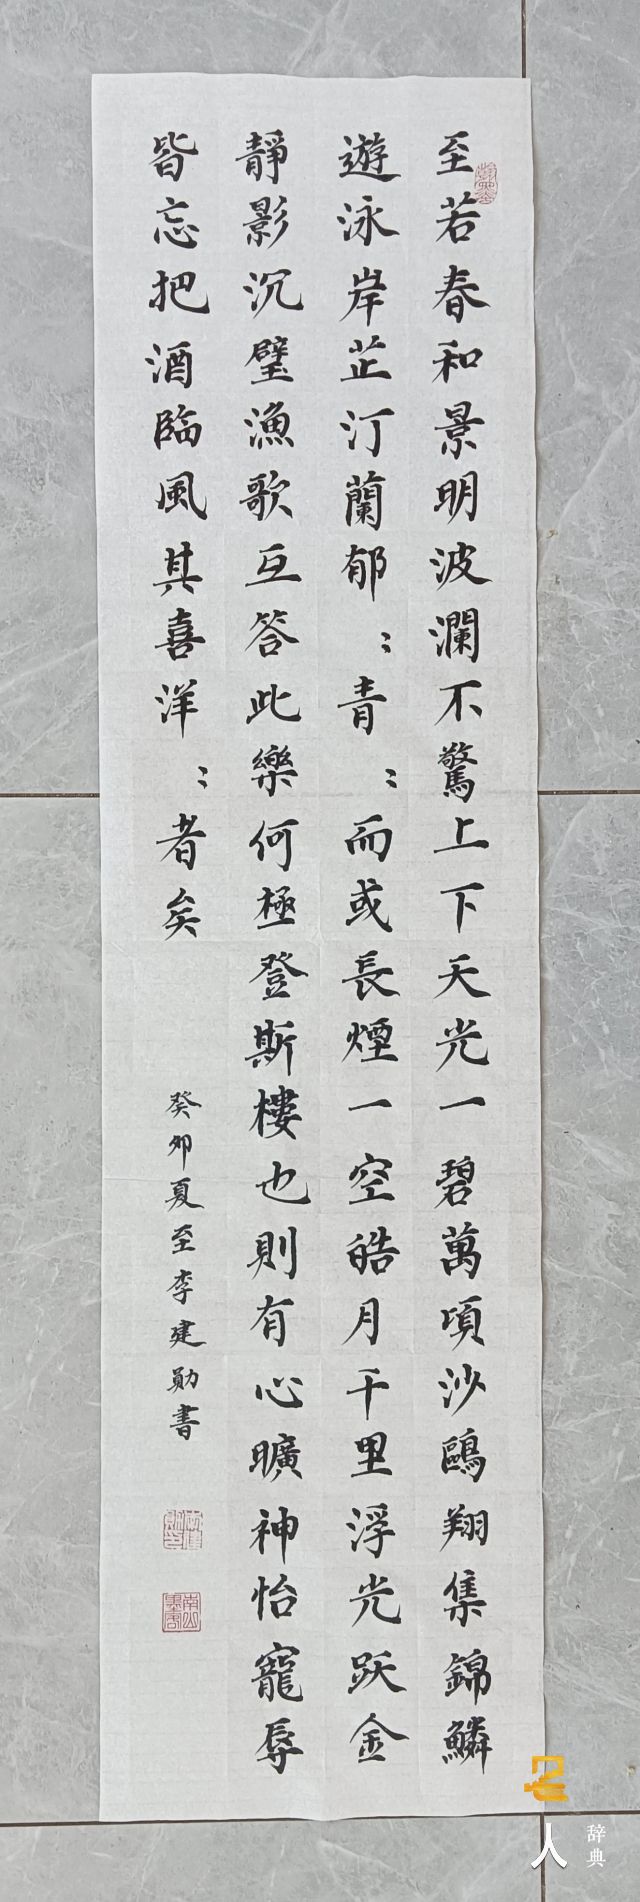 至若春和景明波瀾不驚上下天光一碧萬頃沙鷗翔集錦鱗
遊泳岸芷汀蘭郁：青：而或長煙一空皓月千里浮光跃金
靜影沉璧漁歌互答此樂何極登斯樓也則有心曠神怡寵辱
皆忘把酒臨風其喜洋：者矣
癸卯夏至李建勋書
名人
辞典